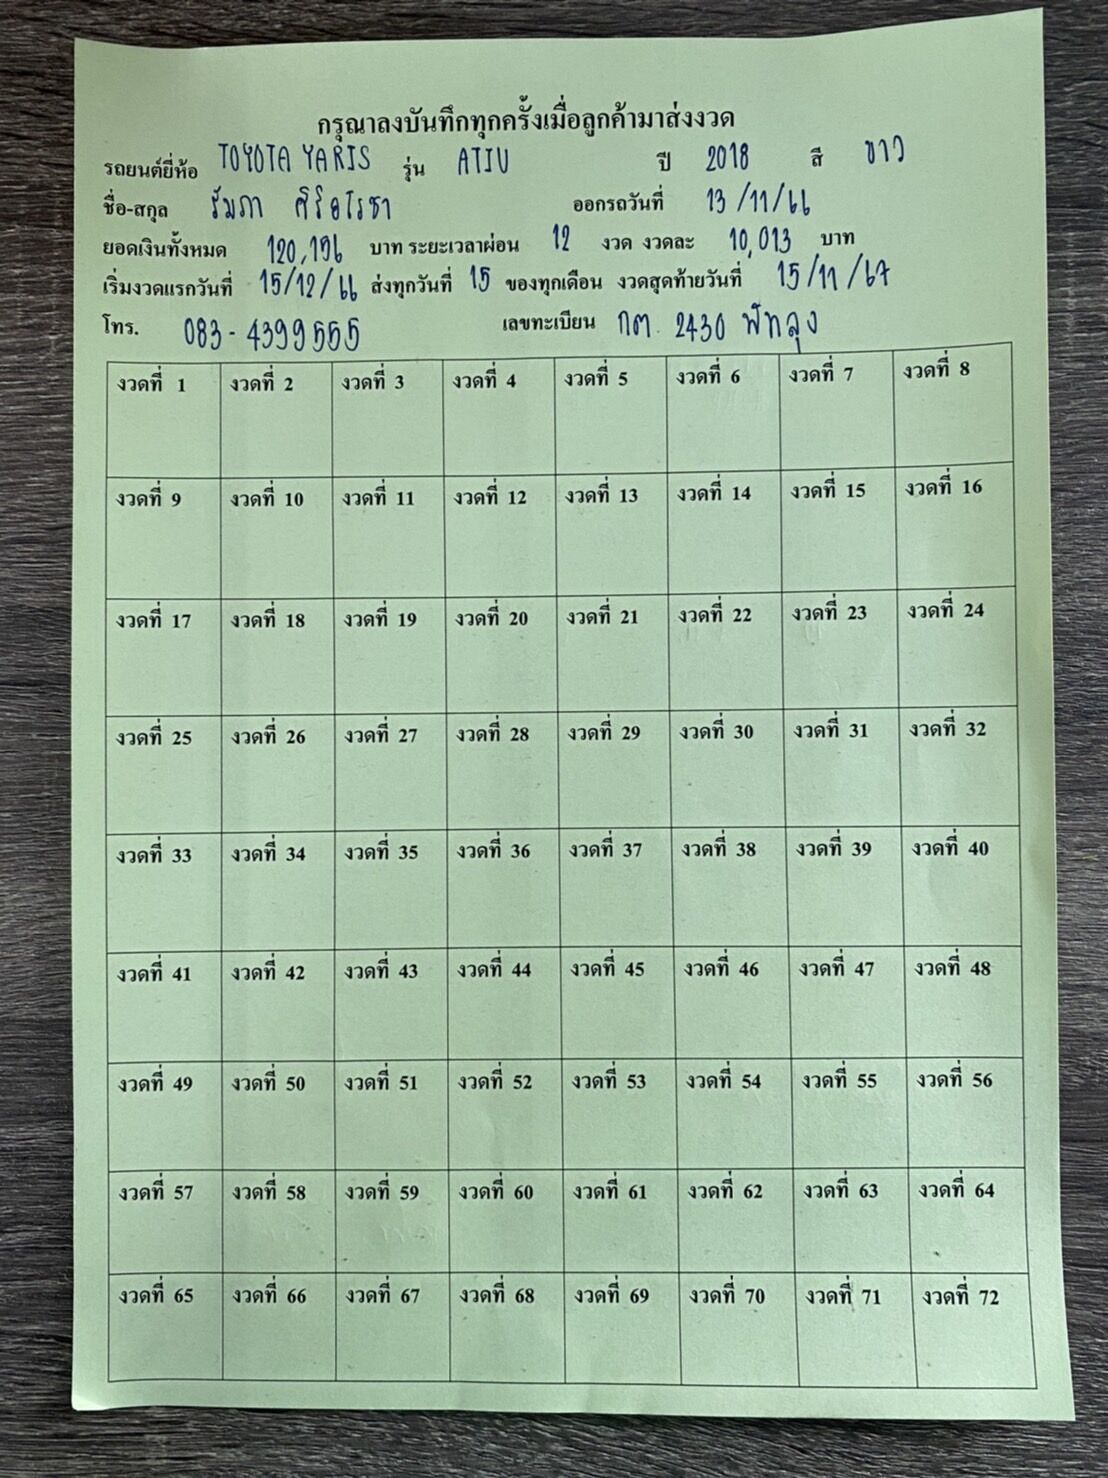 กรุณาลงบันทึกทุกครั้งเมื่อลูกค้ามาส่งงวด
รถยนต์ยี่ห้อ TOYOTA YARIS รุ่น ATIV ปี 2018 สี ขาว
ชื่อ-สกุล รัมภา ศิริอโรชา ออกรถวันที่ 13/11/66
ยอดเงินทั้งหมด 120,156 บาท ระยะเวลาผ่อน 12 งวด งวดละ 10,013 บาท
เริ่มงวดแรกวันที่ 15/12/66 ส่งทุกวันที่ 15 ของทุกเดือน งวดสุดท้ายวันที่ 15/11/67
โทร. 083-4399555 เลขทะเบียน กต 2430 พัทลุง
งวดที่ 1 งวดที่ 2 งวดที่ 3 งวดที่ 4 งวดที่ 5 งวดที่ 6 งวดที่ 7 งวดที่ 8
งวดที่ 9 งวดที่ 10 งวดที่ 11 งวดที่ 12 งวดที่ 13 งวดที่ 14 งวดที่ 15 งวดที่ 16
งวดที่ 17 งวดที่ 18 งวดที่ 19 งวดที่ 20 งวดที่ 21 งวดที่ 22 งวดที่ 23 งวดที่ 24
งวดที่ 25 งวดที่ 26 งวดที่ 27 งวดที่ 28 งวดที่ 29 งวดที่ 30 งวดที่ 31 งวดที่ 32
งวดที่ 33 งวดที่ 34 งวดที่ 35 งวดที่ 36 งวดที่ 37 งวดที่ 38 งวดที่ 39 งวดที่ 40
งวดที่ 41 งวดที่ 42 งวดที่ 43 งวดที่ 44 งวดที่ 45 งวดที่ 46 งวดที่ 47 งวดที่ 48
งวดที่ 49 งวดที่ 50 งวดที่ 51 งวดที่ 52 งวดที่ 53 งวดที่ 54 งวดที่ 55 งวดที่ 56
งวดที่ 57 งวดที่ 58 งวดที่ 59 งวดที่ 60 งวดที่ 61 งวดที่ 62 งวดที่ 63 งวดที่ 64
งวดที่ 65 งวดที่ 66 งวดที่ 67 งวดที่ 68 งวดที่ 69 งวดที่ 70 งวดที่ 71 งวดที่ 72